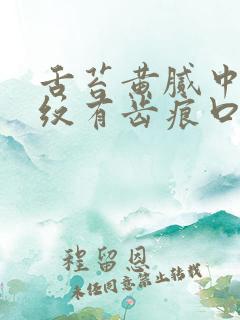 舌苔黄腻中
纹有齿痕口
程留恩
未经同意禁止转载